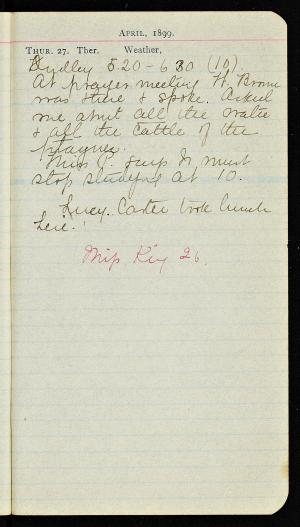 APRIL, 1899.
THUR. 27. Ther. Weather,
Dudley 5 20-6 30 (10).
At prayer meeting H. Brown
was there & spoke. Asked
me about all the
& all the cattle of the
Miss P. says I must
stop studying at 10.
Lucy Carter took lunch
here.
Miss King 26.